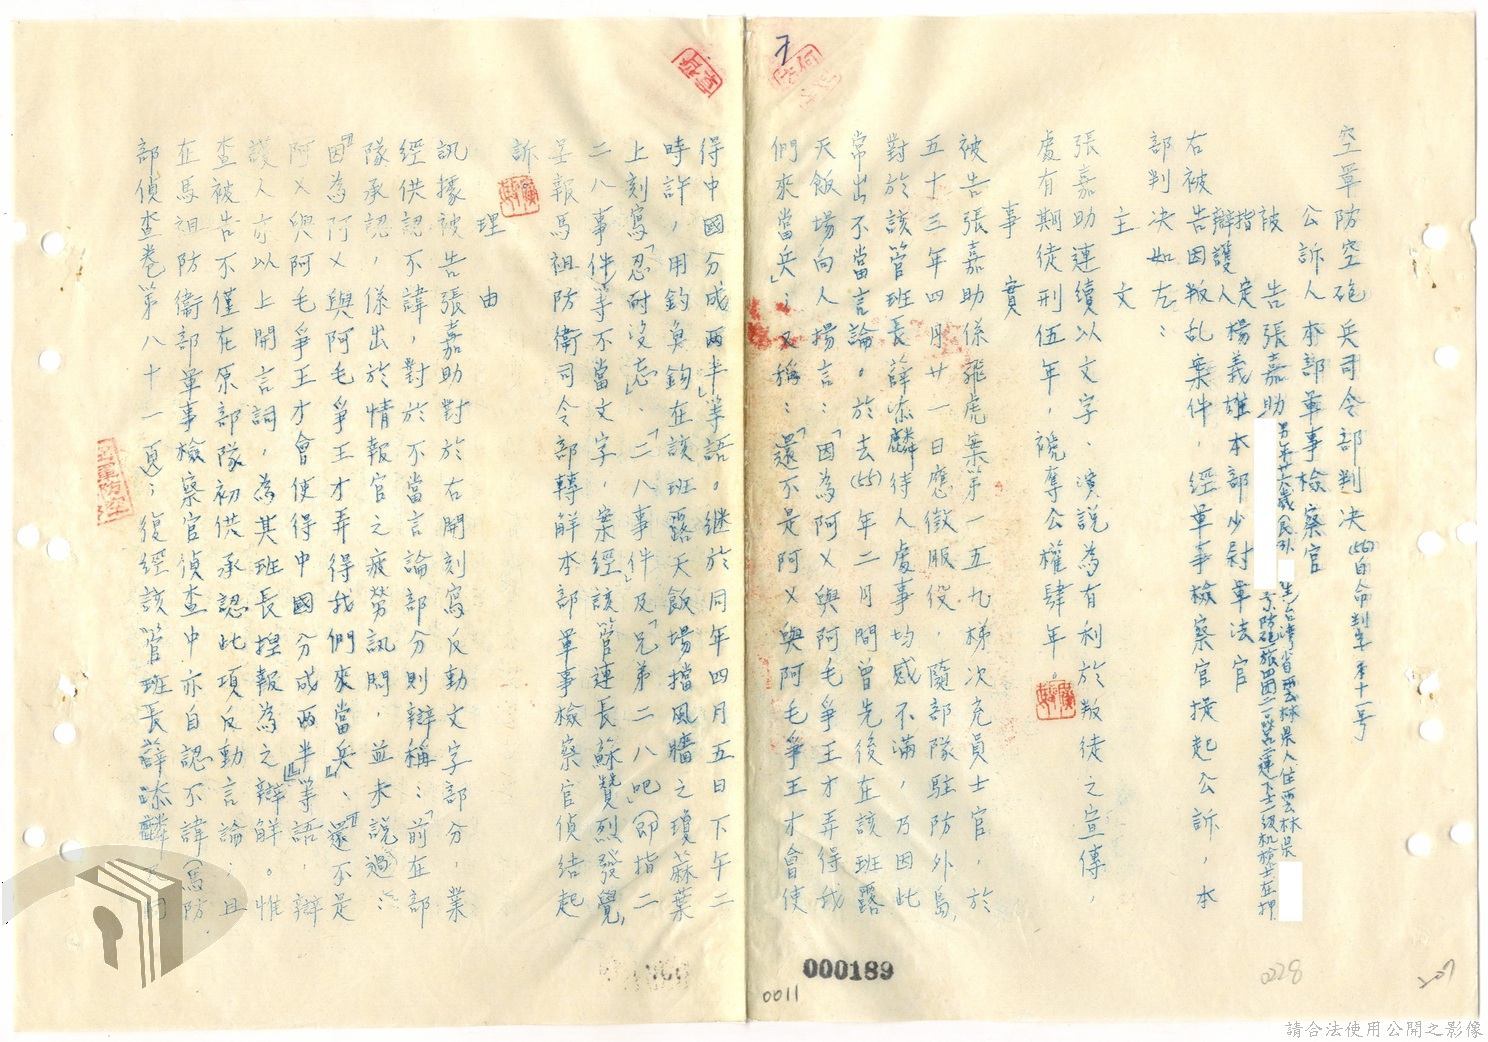 空軍防空砲兵司令部判决(56)自命判字本十一号
公訴人本部軍事檢察官
被告張嘉助男年廿六歲民引 生台灣省雲林県人住雲林県
京防砲旅四團二营二連下士二级机槍士在押
指定
辯護人楊義雄本部少尉軍法官
右被告因叛乱案件，經軍事檢察官提起公訴，本
部判决如左：
主文
張嘉助連續以文字、演說為有利於叛徒之宣傳，
處有期徒刑伍年，褫奪公權肆年。
事實
被告張嘉助係龍虎案第一五九梯次充員士官，於
五十三年四月廿一日應徵服役，隨部隊駐防外島，
對於該管班長薛添麟待人處事均感不滿，乃因此
常出不當言論。於去(55)年二月間曾先後在該班露
天飯場向人揚言：「因為阿ㄨ與阿毛爭王才弄得我
們來當兵」；又稱：「還不是阿ㄨ與阿毛爭王才會使
得中國分成兩半」等語。继於同年四月五日下午二
時許，用釣魚鈎在該班露天飯場擋風牆之瓊蔴葉
上刻寫「忍耐没忘」、「二八事件」及「兄弟二八吧」(即指二
二八事件)等不當文字，案經該管連長蘇贊烈發覺，
呈報馬祖防衛司令部轉解本部軍事檢察官偵结起
訴。
理由
訊據被告張嘉助對於右開刻寫反動文字部分，業
經供認不諱，對於不當言論部分則辯稱：「前在部
隊承認，係出於情報官之疲勞訊問，並未說過：
『因為阿ㄨ與阿毛爭王才弄得我們來當兵』、『還不是
阿ㄨ與阿毛爭王才會使得中國分成兩半』」等語，辯
護人亦以上開言詞，為其班長捏報為之辯解。惟
查被告不僅在原部隊初供承認此項反動言論；且
在馬祖防衛部軍事檢察官偵查中亦自認不諱(馬防
部偵查卷第八十一頁)；復經該管班長薛添麟
000189
0011
0028
207
請合法使用公開之影像